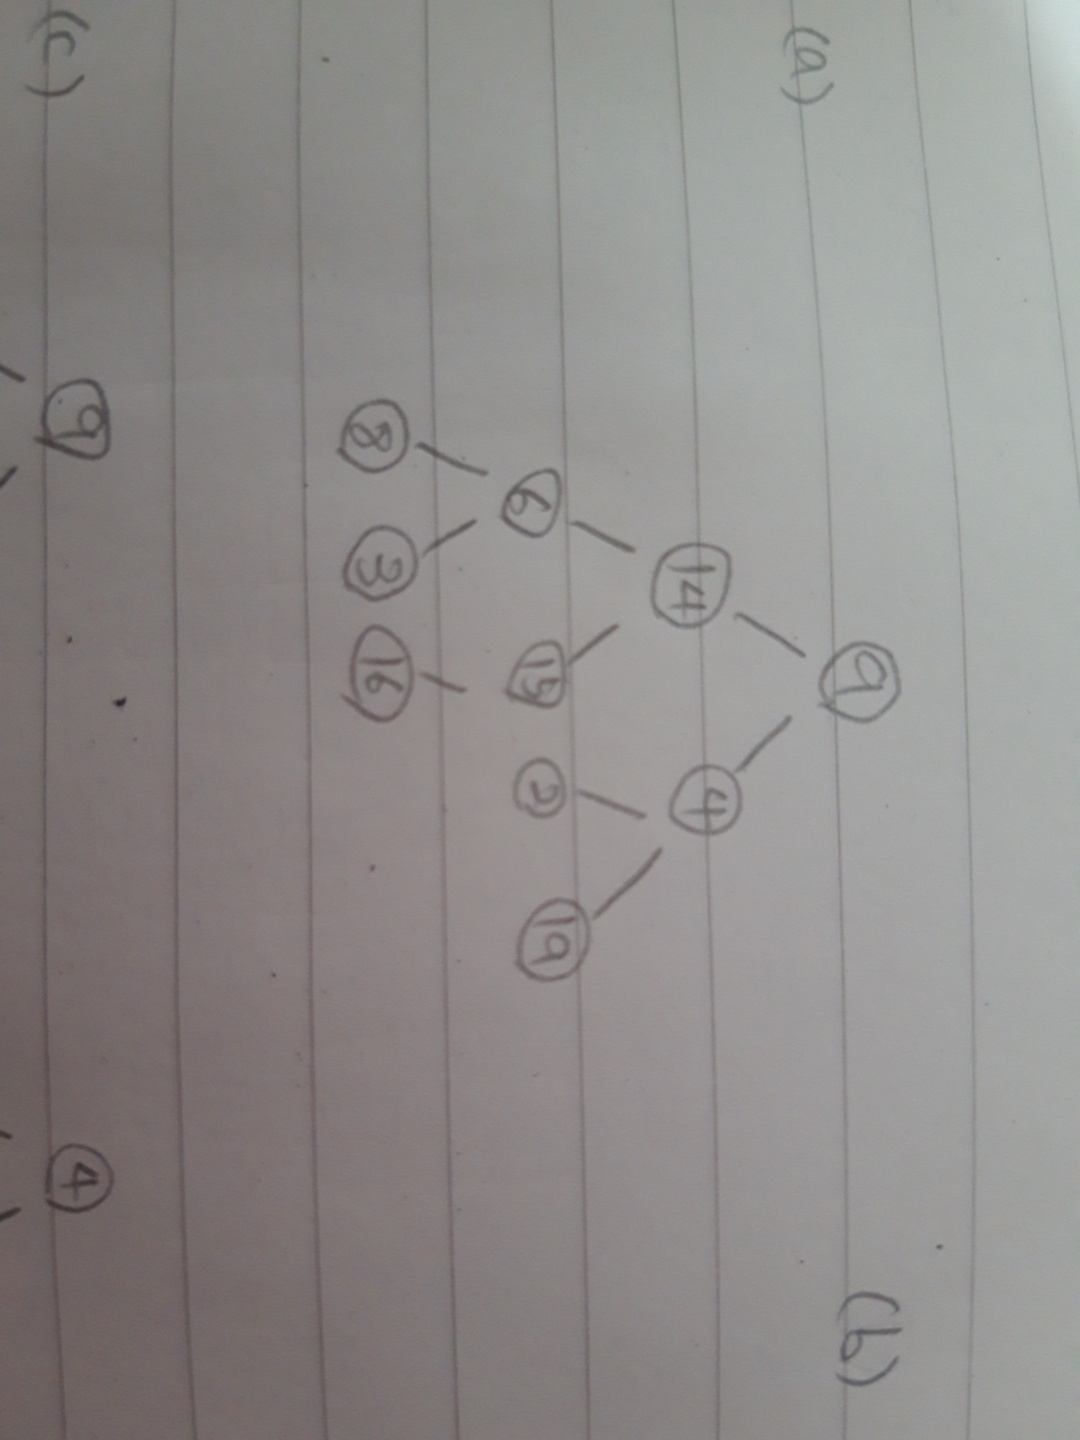 9
(b)
(a)
14 4
6 15 2 19
8 3 16
(c) 9 4